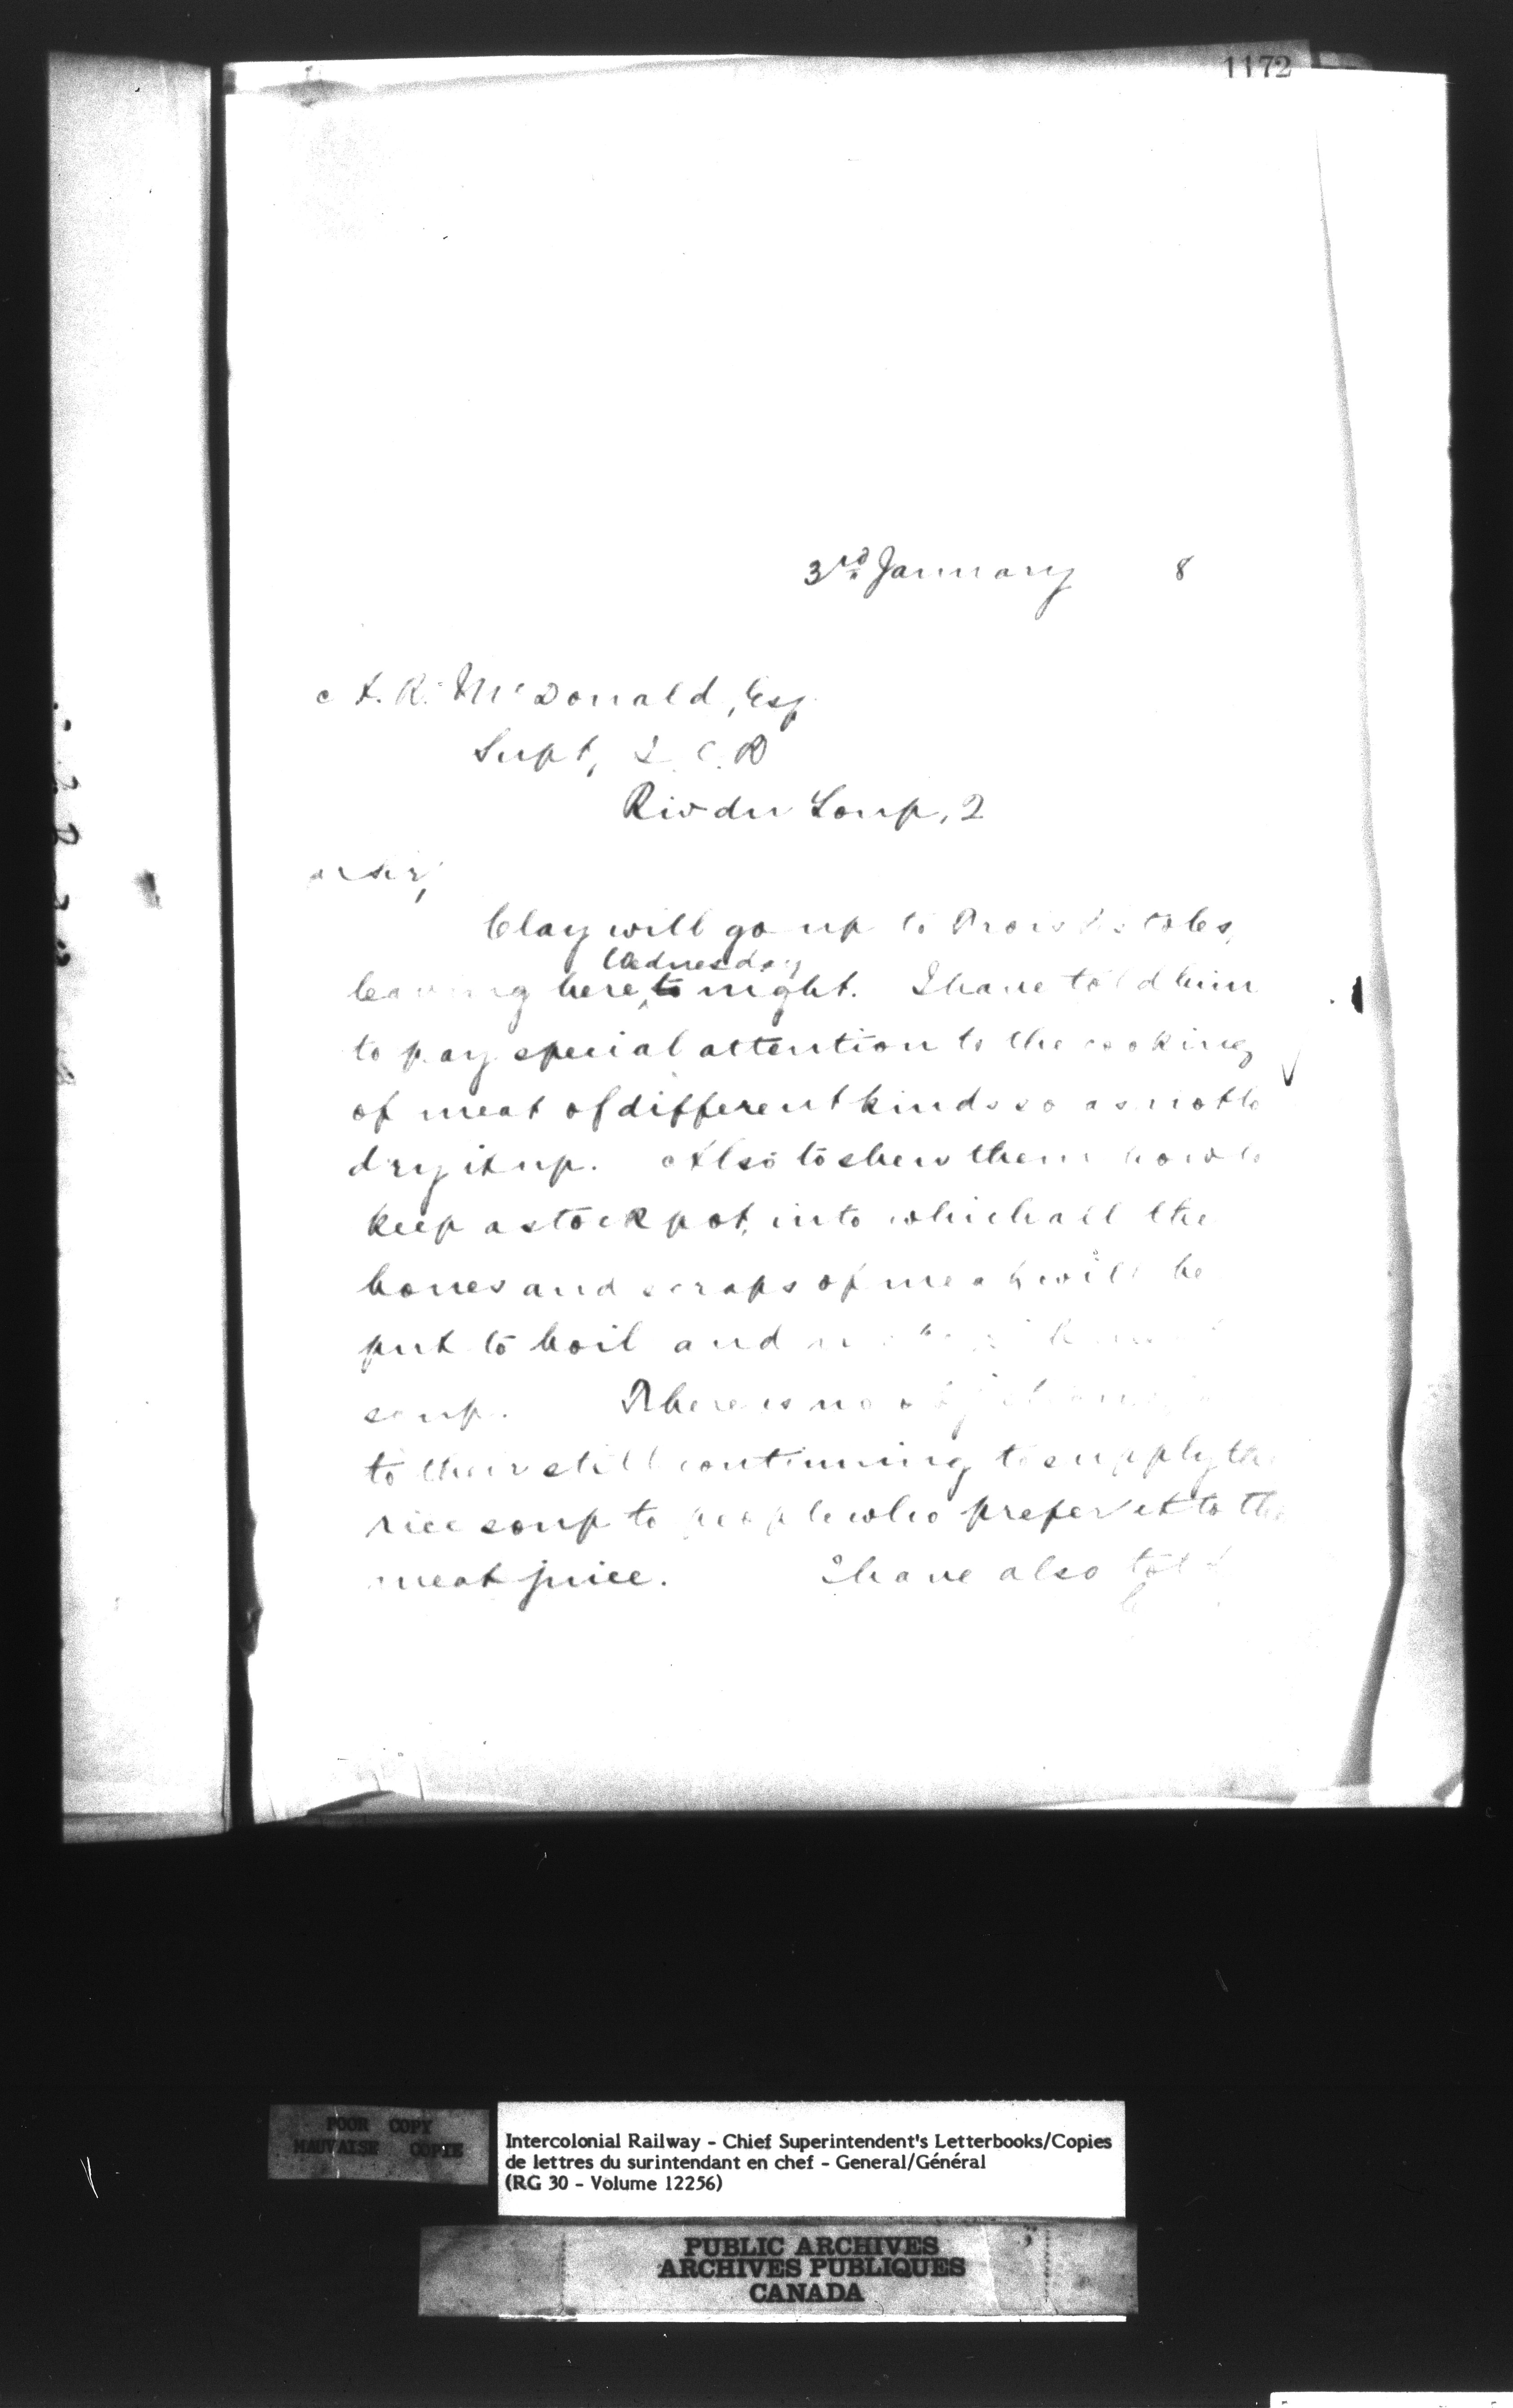 1172
3rd January 8
A. R. McDonald, Esq.
Supt, I. C. R
Riv du Loup, Q
Sir,
Clay will go up to Trois Pistoles,
Wednesday
leaving here to night. I have told him
to pay special attention to the cooking
of meat of different kinds so as not to
dry it up. Also to shew them how to
keep a stock pot, into which all the
bones and scraps of meat will be
put to boil and
soup. There is no objection
to their still continuing to supply the
rice soup to people who prefer it to the
meat juice. I have also told
POOR COPY
MAUVAISE COPIE
Intercolonial Railway - Chief Superintendent's Letterbooks/Copies
de lettres du surintendant en chef - General/Général
(RG 30 - Volume 12256)
PUBLIC ARCHIVES
ARCHIVES PUBLIQUES
CANADA